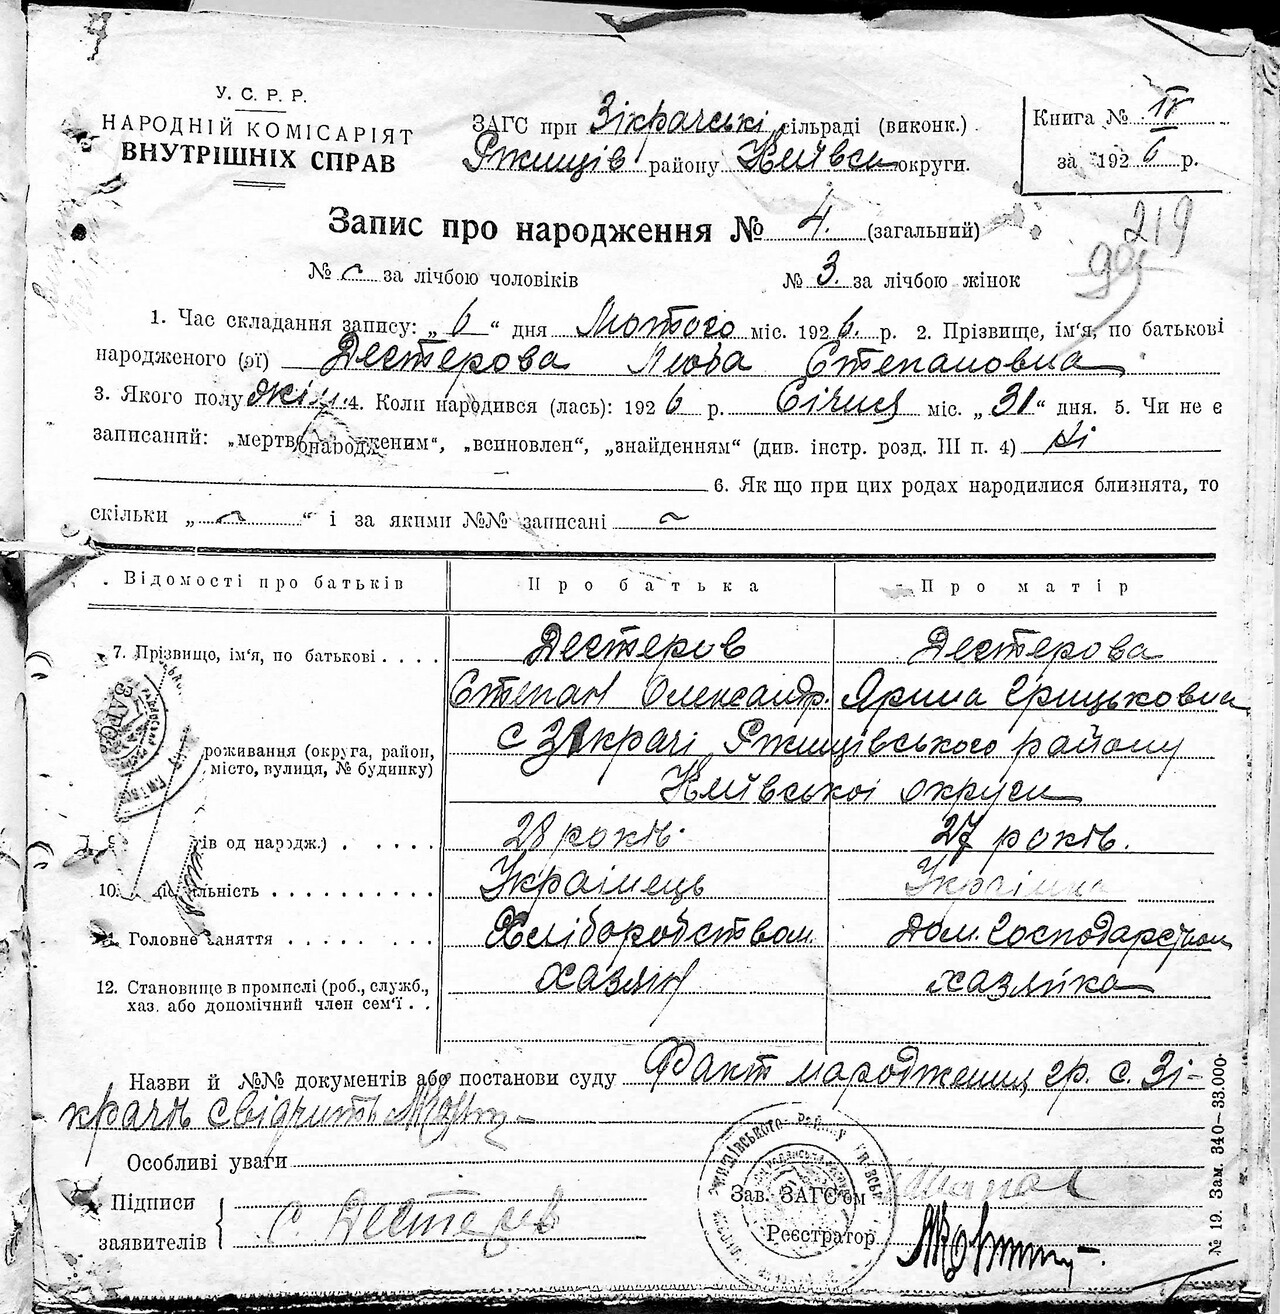 У. С. Р. Р.
НАРОДНІЙ КОМІСАРІЯТ
ВНУТРІШНІХ СПРАВ
ЗАГС при Зікрачські сільраді (виконк.)
Ржищів району Київськ округи.
Книга № IV
за 1926 р.
Запис про народження № 4. (загальний)
219
№ за лічбою чоловіків № 3. за лічбою жінок
1. Час складання запису: „6“ дня Лютого міс. 1926. р. 2. Прізвище, ім'я, по батькові
народженого (ої) Дестерова Люба Степановна
3. Якого полу жін. 4. Коли народився (лась): 1926 р. Січня міс. „31“ дня. 5. Чи не є
записаний: „мертвонародженим“, „всиновлен“, „знайденням“ (див. інстр. розд. III п. 4) Ні
6. Як що при цих родах народилися близнята, то
скільки „ “ і за якими №№ записані
Відомості про батьків Про батька Про матір
7. Прізвищо, ім'я, по батькові Дестеров Дестерова
Степан Олександр. Ярина Грицьковна
роживання (округа, район, с Зікрачі Ржищівського району
місто, вулиця, № будинку) Київської округи
ів од народж.) 28 років. 27 років.
10. альність Українець Українка
Головне заняття Хліборобством Дом. Господарством
12. Становище в промислі (роб., служб., хазяїн хазяйка
хаз. або допомічний член сем'ї
Назви й №№ документів або постанови суду Факт народження гр. с. Зі-
крачі свідчить
Особливі уваги
Підписи
заявителів С Дестеров
Зав. ЗАГС'ом
Реєстратор
№ 19. Зам. 340—33.000.